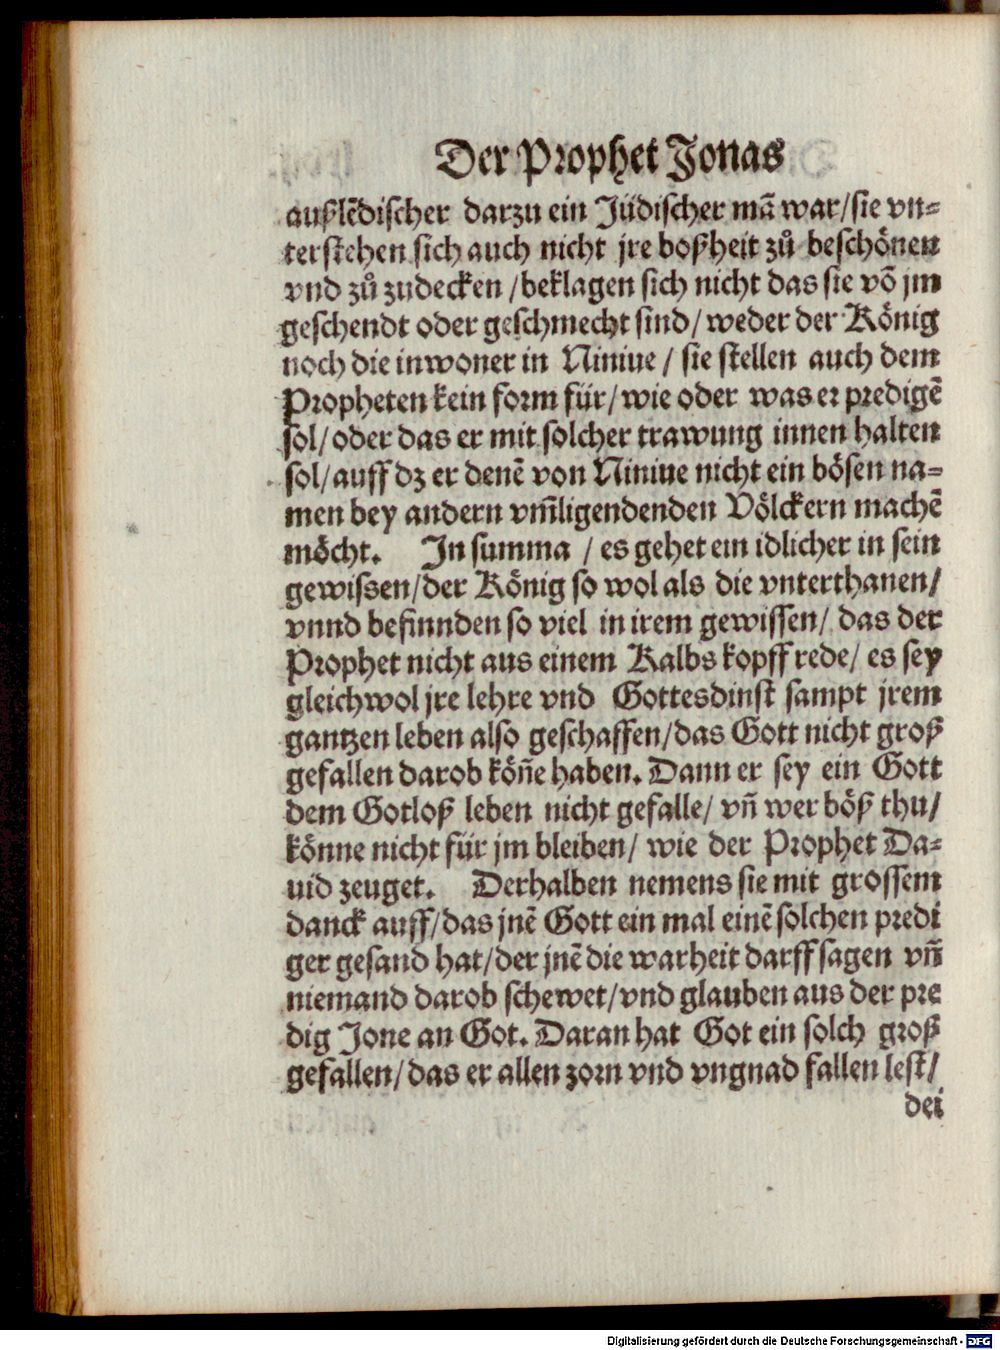 Der Prophet Jonas
außlẽdischer darzu ein Jüdischer mã war/sie vn=
terstehen sich auch nicht jre boßheit zů beschönen
vnd zů zudecken /beklagen sich nicht das sie võ jm
geschendt oder geschmecht sind/ weder der König
noch die inwoner in Niniue / sie stellen auch dem
Propheten kein form für/ wie oder was er predigẽ
sol/ oder das er mit solcher trawung innen halten
sol/ auff dz er denẽ von Niniue nicht ein bösen na=
men bey andern vm̃ligendenden Völckern machẽ
möcht. In summa / es gehet ein idlicher in sein
gewissen/der König so wol als die vnterthanen/
vnnd befinnden so viel in irem gewissen/ das der
Prophet nicht aus einem Kalbs kopff rede/ es sey
gleichwol jre lehre vnd Gottesdinst sampt jrem
gantzen leben also geschaffen/das Gott nicht groß
gefallen darob kön̄e haben. Dann er sey ein Gott
dem Gotloß leben nicht gefalle/ vn̄ wer böß thu/
könne nicht für jm bleiben/ wie der Prophet Da=
uid zeuget. Derhalben nemens sie mit grossem
danck auff/das jnẽ Gott ein mal einẽ solchen predi
ger gesand hat/der jnẽ die warheit darff sagen vn̄
niemand darob schewet/vnd glauben aus der pre
dig Jone an Got. Daran hat Got ein solch groß
gefallen/das er allen zorn vnd vngnad fallen lest/
dei
Digitalisierung gefördert durch die Deutsche Forschungsgemeinschaft - DFG